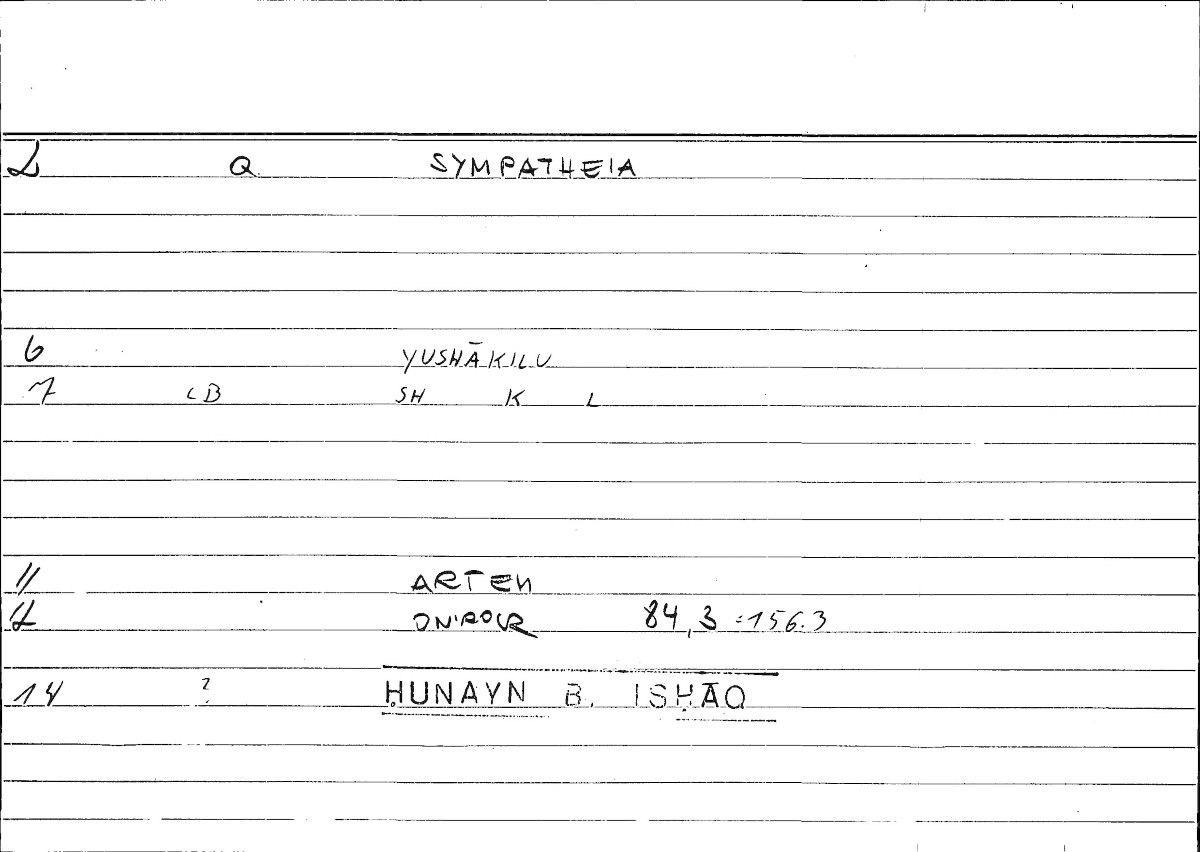 2 Q SYMPATHEIA
6 YUSHĀKILU
7 LB SH K L
11 ARTEM
12 ONIROCR 84,3 =156.3
14 ? ḤUNAYN B. ISḤĀQ